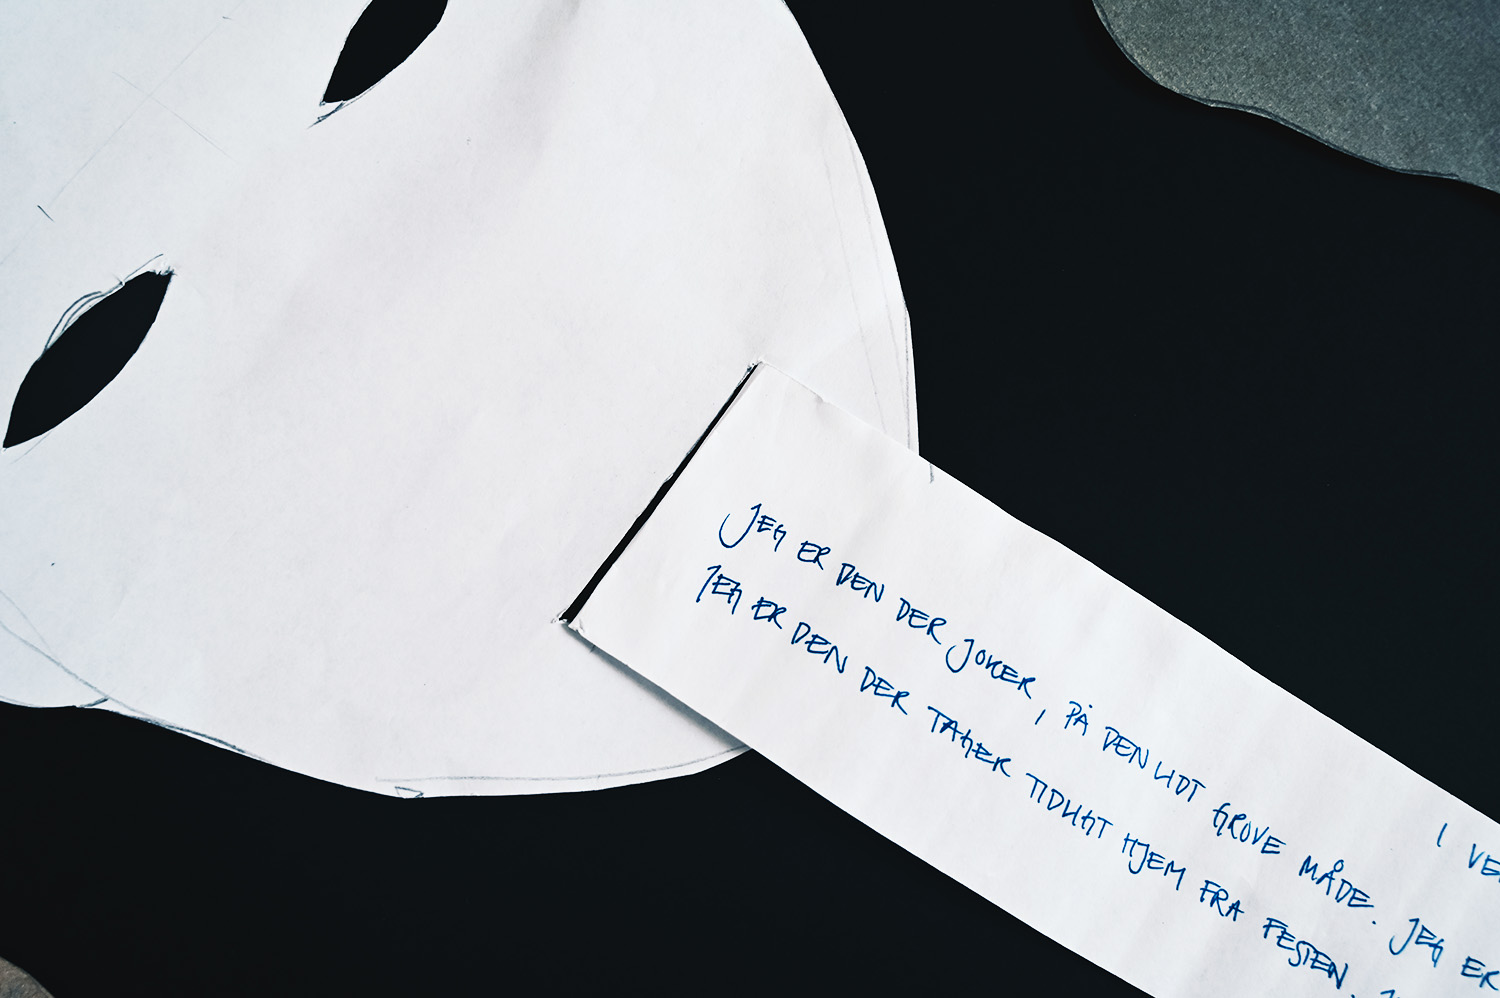 I VE
JEG ER DEN DER JOKER, PÅ DEN LIDT GROVE MÅDE. JEG ER
JEG ER DEN DER TAGER TIDLIGT HJEM FRA FESTEN.